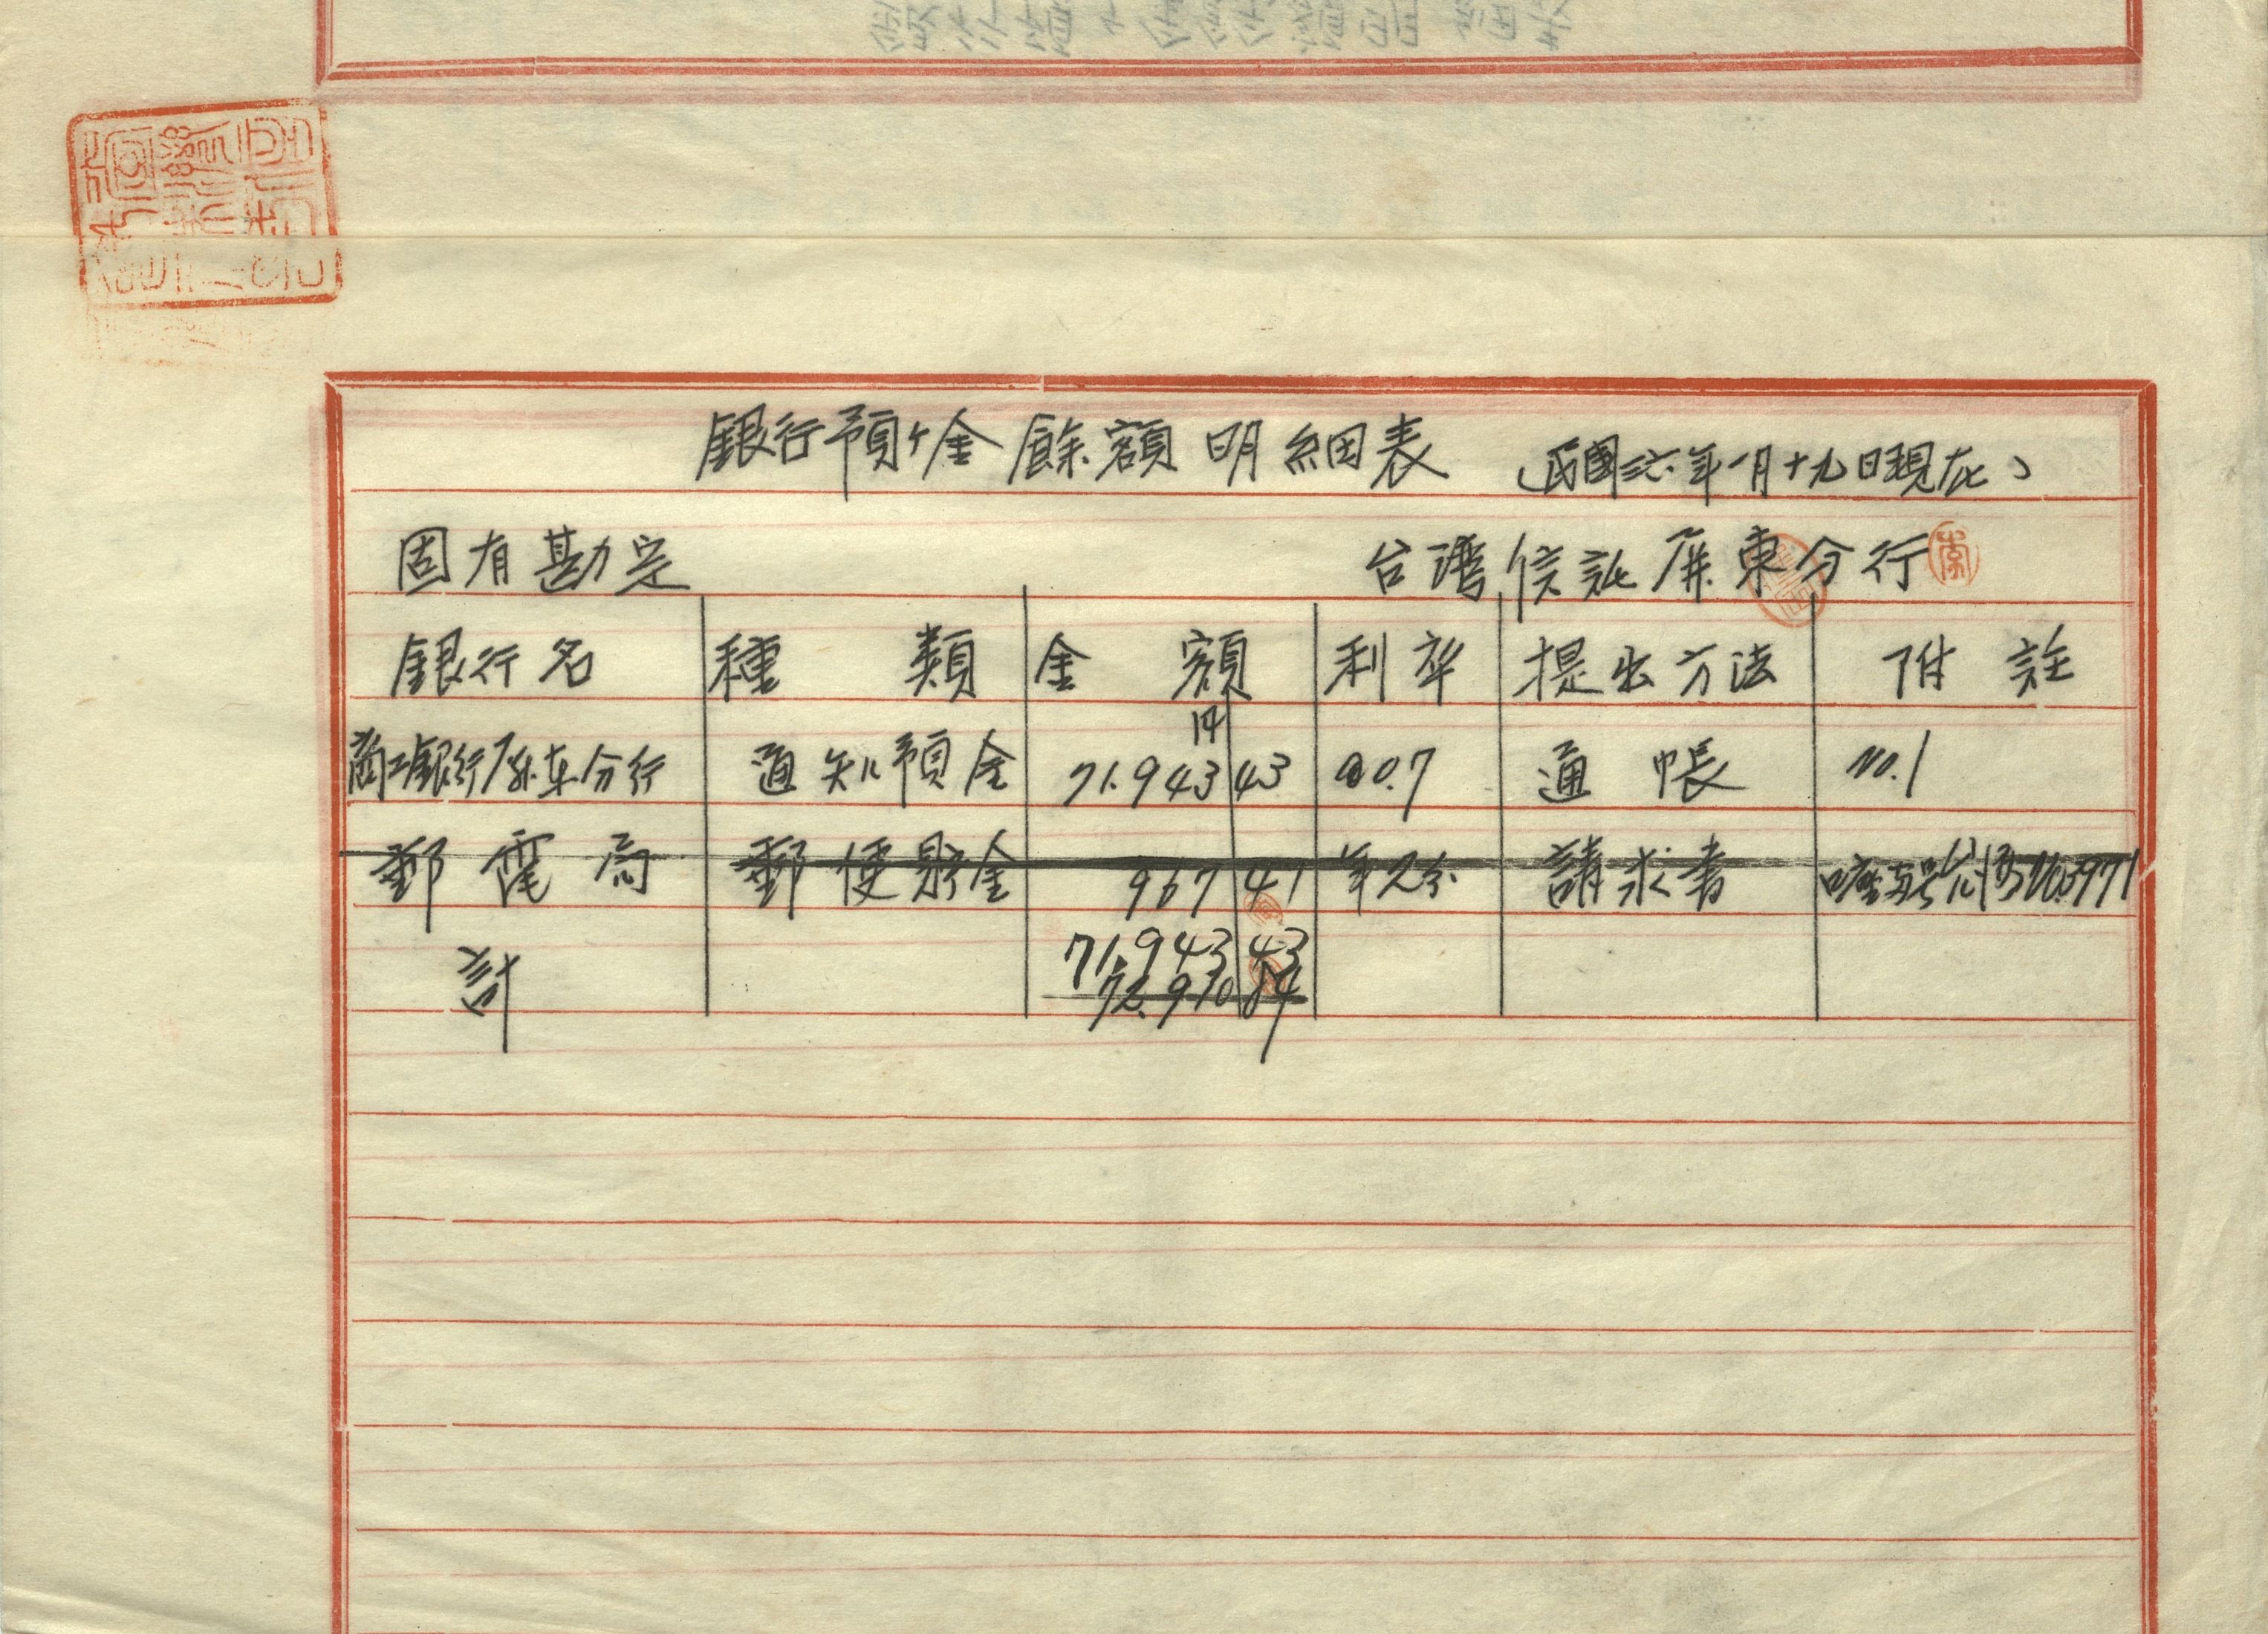 銀行預ケ金餘額明細表 (民國三六年一月十九日現在)
固有勘定 台灣信託屏東分行
銀行名 種類 金額 利率 提出方法 附註
商工銀行屏東分行 通知預金 71.943 43 0.7 通帳 No.1
郵電局 郵便貯金 967 41 請求書 No.3971
71,943 43
計 72.910 84